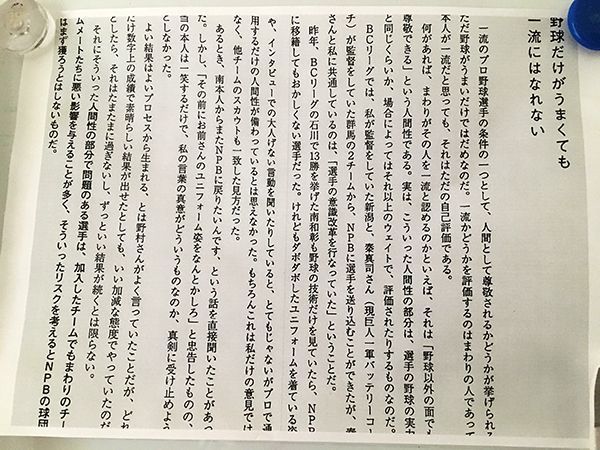 野球だけがうまくても
一流にはなれない
一流のプロ野球選手の条件の一つとして、人間として尊敬されるかどうかが挙げられる
ただ野球がうまいだけではだめなのだ。一流かどうかを評価するのはまわりの人であって
本人が一流だと思っても、それはただの自己評価である。
何があれば、まわりがその人を一流と認めるのかといえば、それは「野球以外の面でも
尊敬できる」という人間性である。実は、こういった人間性の部分は、選手の野球の実力
と同じくらいか、場合によってはそれ以上のウェイトで、評価されたりするものなのだ。
BCリーグでは、私が監督をしていた新潟と、秦真司さん（現巨人一軍バッテリーコー
チ）が監督をしていた群馬の2チームから、NPBに選手を送り込むことができたが、秦
さんと私に共通しているのは、「選手の意識改革を行なっていた」ということだ。
昨年、BCリーグの石川で13勝を挙げた南和彰も野球の技術だけを見ていたら、NPB
に移籍してもおかしくない選手だった。けれどもダボダボしたユニフォームを着ている姿
や、インタビューでの大人げない言動を聞いたりしていると、とてもじゃないがプロで通
用するだけの人間性が備わっているとは思えなかった。もちろんこれは私だけの意見では
なく、他チームのスカウトも一致した見方だった。
あるとき、南本人からまたNPBに戻りたいんです、という話を直接聞いたことがあっ
た。しかし、「その前にお前さんのユニフォーム姿をなんとかしろ」と忠告したものの、
当の本人は一笑するだけで、私の言葉の真意がどういうものなのか、真剣に受け止めよう
としなかった。
よい結果はよいプロセスから生まれる、とは野村さんがよく言っていたことだが、どれ
だけ数字上の成績で素晴らしい結果が出せたとしても、いい加減な態度でやっていたのだ
としたら、それはたまたまに過ぎないし、ずっといい結果が続くとは限らない。
それにそういった人間性の部分で問題のある選手は、加入したチームでもまわりのチー
ムメートたちに悪い影響を与えることが多く、そういったリスクを考えるとNPBの球団
はまず獲ろうとはしないものだ。